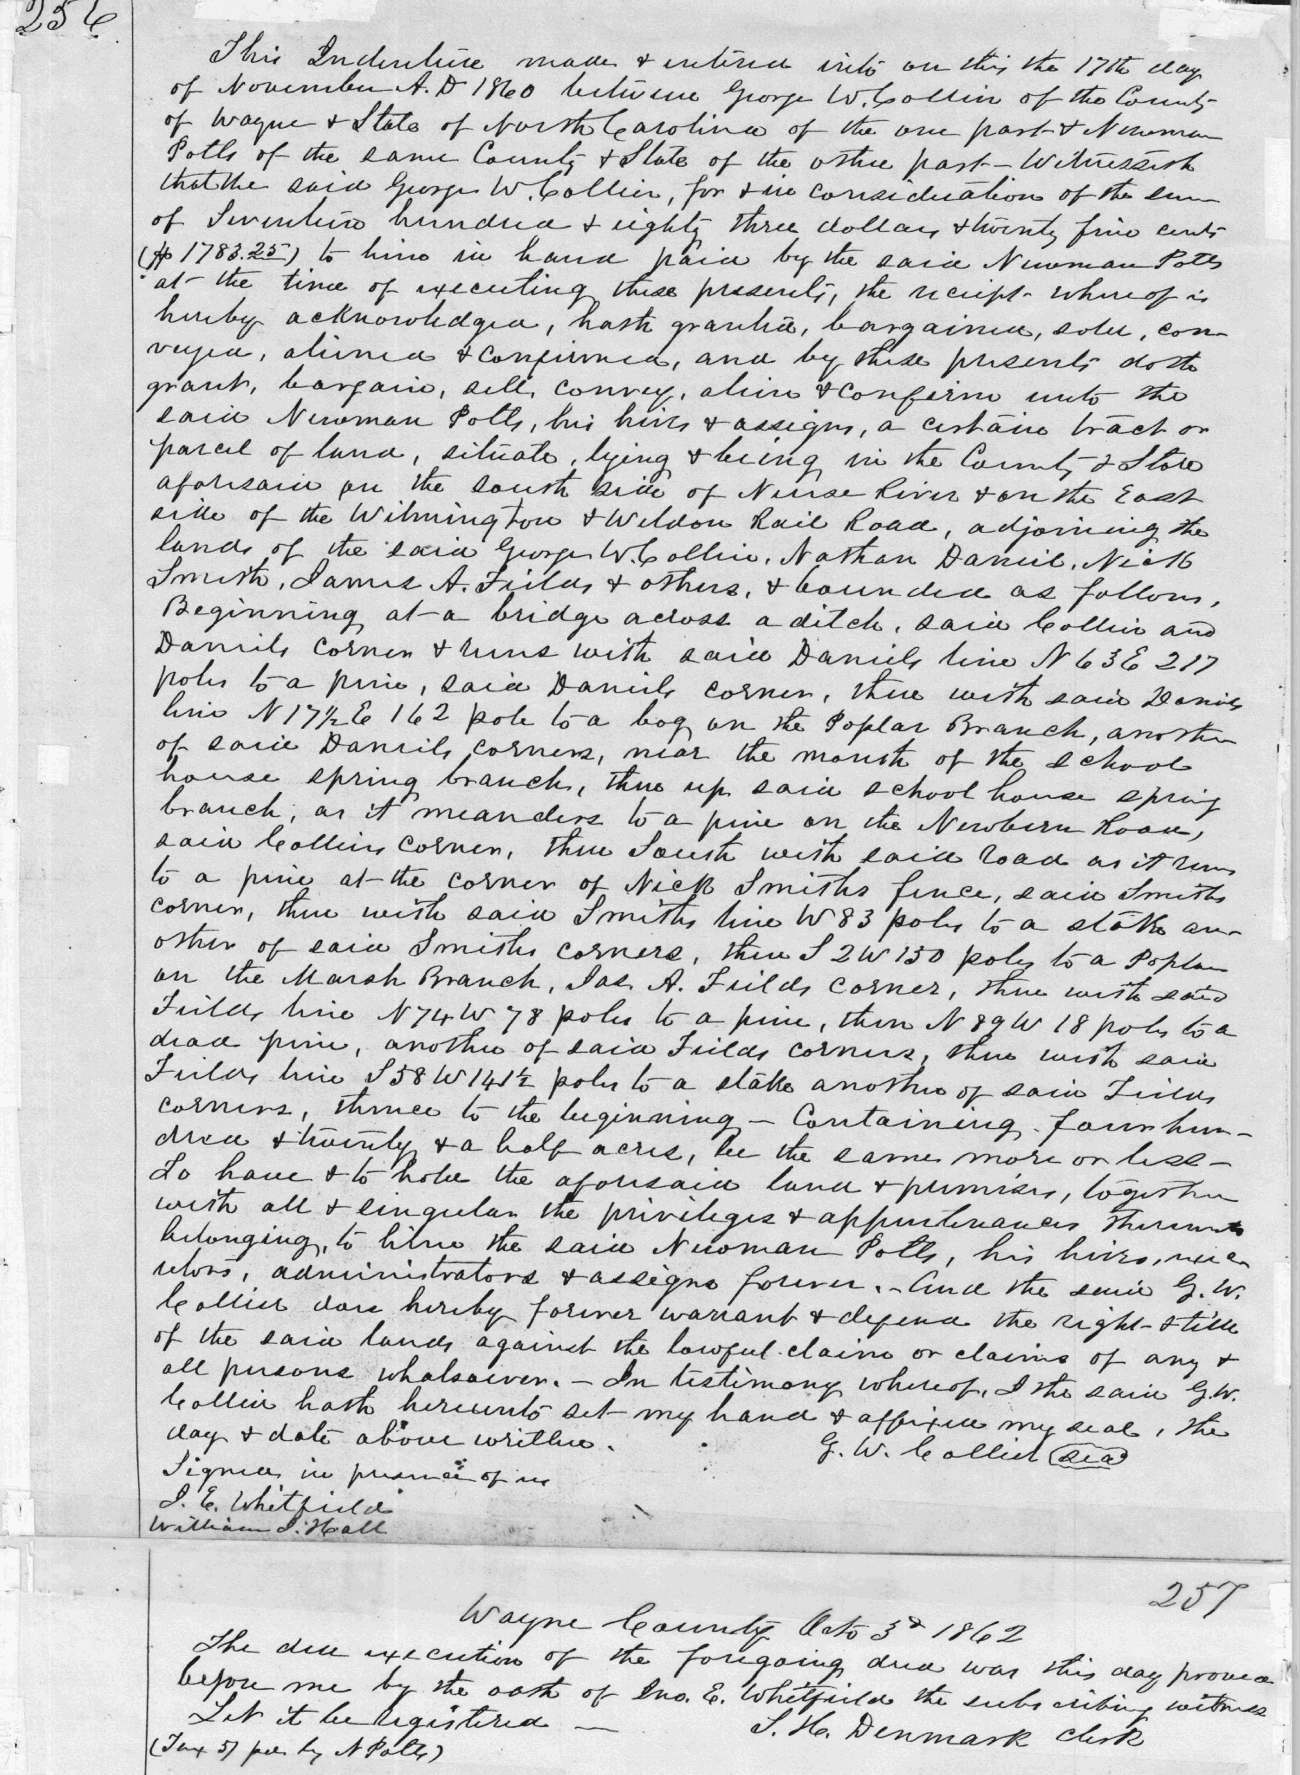 256
This Indenture made & entered into on this the 17th day
of November A.D 1860 between George W. Collier of the County
of Wayne & State of North Carolina of the one part & Newman
Potts of the same County & State of the other part – Witnesseth
that the said George W. Collier, for & in consideration of the sum
of Seventeen hundred & eighty three dollars & twenty five cents
($ 1783.25) to him in hand paid by the said Newman Potts
at the time of executing these presents, the receipt whereof is
hereby acknowledged, hath granted, bargained, sold, con-
veyed, aliened & confirmed, and by these presents doth
grant, bargain, sell, convey, alien & confirm unto the
said Newman Potts, his heirs & assigns, a certain tract or
parcel of land, situate, lying & being in the County & State
aforesaid on the south side of Neuse River & on the East
side of the Wilmington & Weldon Rail Road, adjoining the
lands of the said George W. Collier, Nathan Daniel, Nick
Smith, James A. Fields & others, & bounded as follows,
Beginning at a bridge across a ditch, said Collier and
Daniels corner & runs with said Daniels line N 63 E 217
poles to a pine, said Daniels corner, then with said Daniels
line N 17½ E 162 pole to a bog on the Poplar Branch, another
of said Daniels corners, near the mouth of the school
house spring branch, then up said school house spring
branch, as it meanders to a pine on the Newbern Road,
said Colliers corner, then South with said road as it runs
to a pine at the corner of Nick Smiths fence, said Smiths
corner, then with said Smiths line W 83 poles to a stake an-
other of said Smiths corners, then S 2 W 150 poles to a Poplar
on the Marsh Branch, Jas. A. Fields corner, then with said
Fields line N 74 W 78 poles to a pine, then N 89 W 18 poles to a
dead pine, another of said Fields corners, then with said
Fields line S 58 W 141½ poles to a stake another of said Fields
corners, thence to the beginning – Containing four hun-
dred & twenty & a half acres, be the same more or less –
To have & to hold the aforesaid land & premises, together
with all & singular the privileges & appurtenances thereunto
belonging, to him the said Newman Potts, his heirs, exec-
utors, administrators & assigns forever. – And the said G. W.
Collier does hereby forever warrant & defend the right & title
of the said lands against the lawful claim or claims of any &
all persons whatsoever. – In testimony whereof, I the said G. W.
Collier hath hereunto set my hand & affixed my seal, the
day & date above written.
G. W. Collier seal
Signed in presence of us
J. E. Whitfield
William J. Hall
257
Wayne County Octo 3d 1862
The due execution of the foregoing deed was this day proved
before me by the oath of Jno. E. Whitfield the subscribing witness
Let it be registered –
S. H. Denmark Clerk
(Tax pd by N Potts)